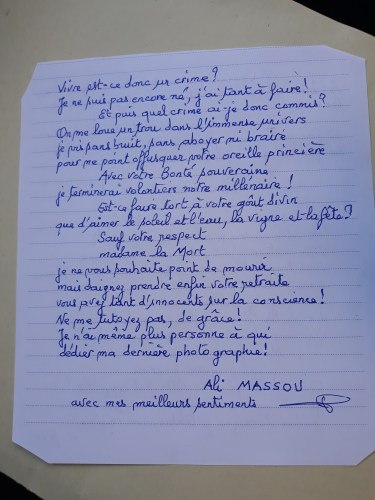 Vivre est-ce donc un crime?
Je ne suis pas encore né, j'ai tant à faire!
Et puis quel crime ai-je donc commis?
On me loue un trou dans l'immense univers
je vis sans bruit, sans aboyer ni braire
pour ne point offusquer votre oreille princière
Avec votre Bonté souveraine
je terminerai volontiers notre millénaire!
Est-ce faire tort à votre goût divin
que d'aimer le soleil et l'eau, la vigne et la fête?
Sauf votre respect
madame la Mort
je ne vous souhaite point de mourir
mais daignez prendre enfin votre retraite
vous avez tant d'innocents sur la conscience!
Ne me tutoyez pas, de grâce!
Je n'ai même plus personne à qui
dédier ma dernière photographie!
Ali MASSOU
avec mes meilleurs sentiments